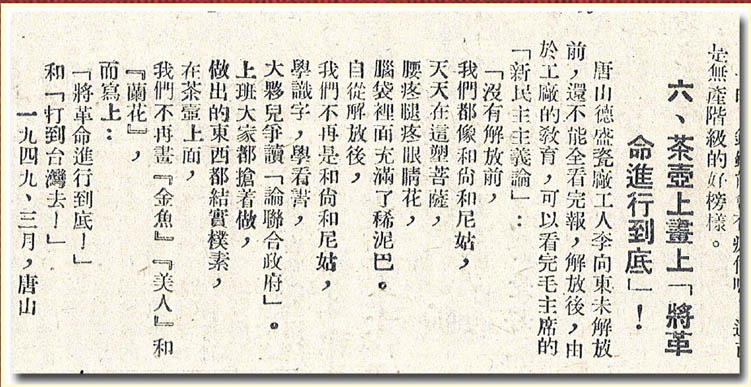 是無產階級的好榜樣。
六、茶壺上畫上「將革
命進行到底」！
唐山德盛瓷廠工人李向東未解放
前，還不能全看完報，解放後，由
於工廠的教育，可以看完毛主席的
「新民主主義論」：
「沒有解放前，
我們都像和尚和尼姑，
天天在這塑菩薩，
腰疼腿疼眼睛花，
腦袋裡面充滿了稀泥巴。
自從解放後，
我們不再是和尚和尼姑，
學識字，學看書，
大夥兒爭讀「論聯合政府」。
上班大家都搶着做，
做出的東西都結實樸素，
在茶壺上面，
我們不再畫『金魚』『美人』和
『蘭花』，
而寫上：
「將革命進行到底！」
和「打到台灣去！」
一九四九、三月，唐山